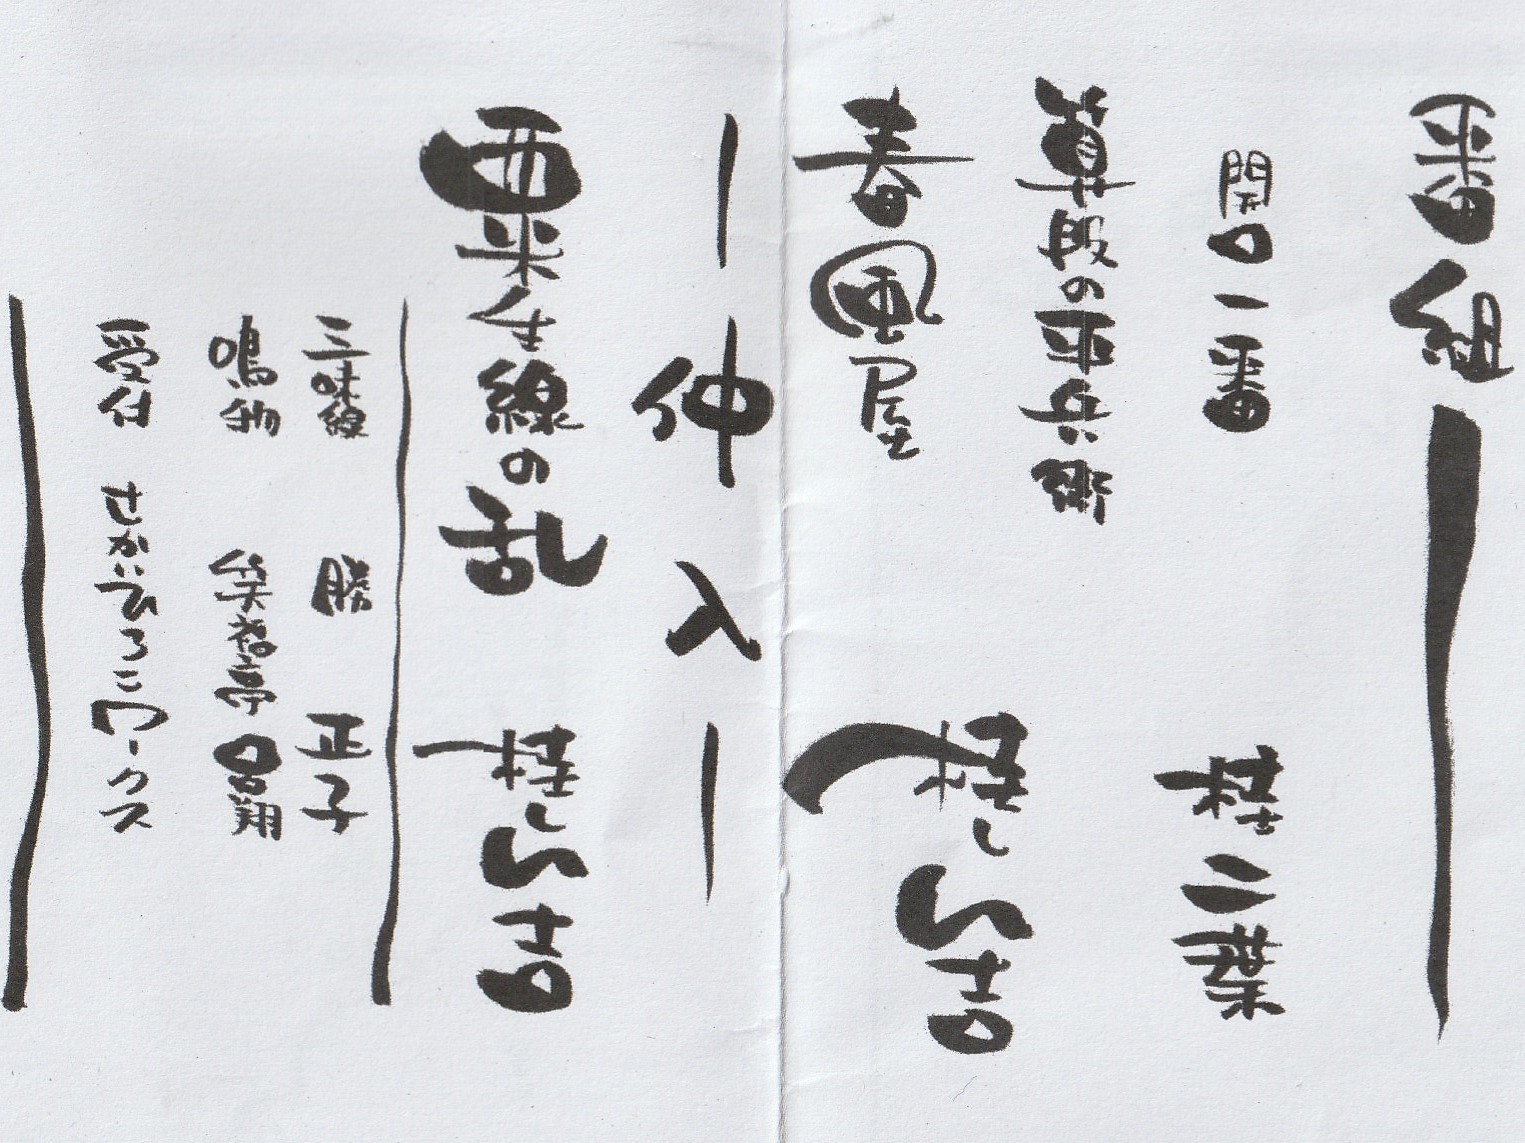 番組
開口一番 桂二葉
算段の平兵衛
春風屋 桂しん吉
ー仲入ー
粟生線の乱 桂しん吉
三味線 勝 正子
鳴物 笑福亭呂翔
受付 さかいひろこワークス